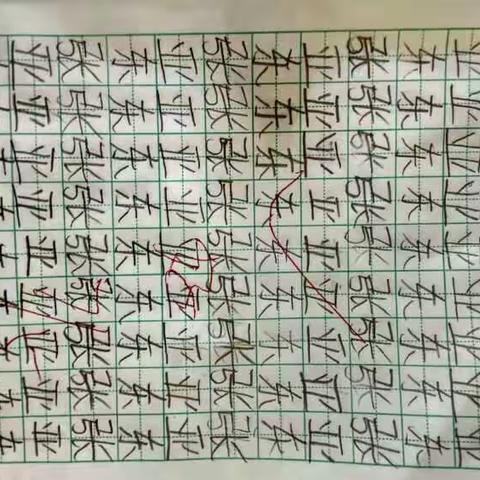 亚亚亚亚亚亚亚亚亚
东东东东东东东东东
张张张张张张张张张
亚亚亚亚亚亚亚亚亚
东东东东东东东东东
张张张张张张张张张
亚亚亚亚亚亚亚亚亚
东东东东东东东东东
张张张张张张张张张
亚亚亚亚亚亚亚亚亚